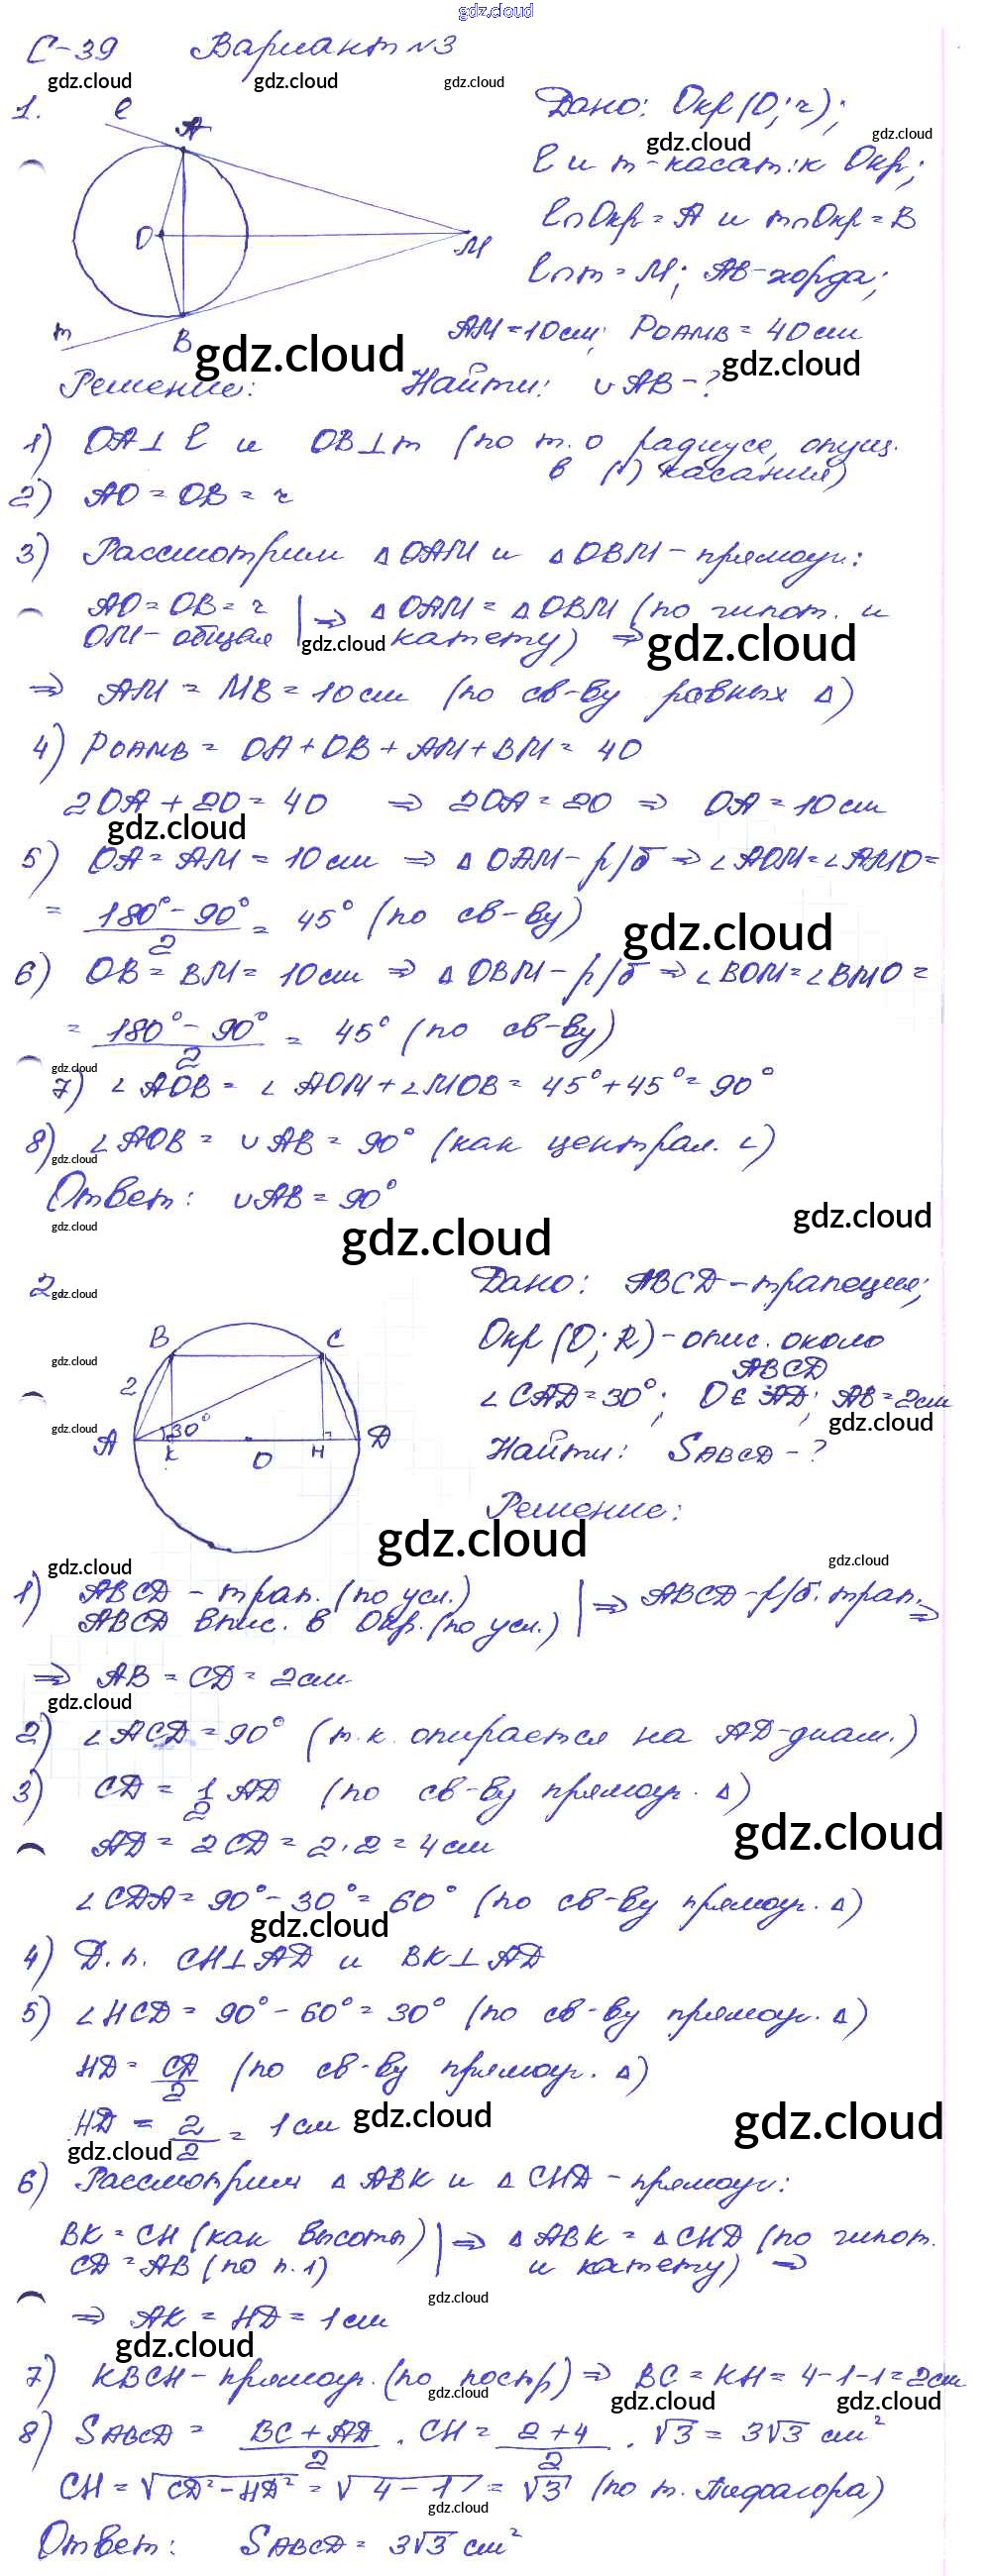 gdz.cloud
С-39 Вариант №3
gdz.cloud gdz.cloud gdz.cloud
1. ℓ A O M m B
Дано: Окр(O; r);
gdz.cloud gdz.cloud
ℓ и m - касат. к Окр;
ℓ∩Окр = A и m∩Окр = B
ℓ∩m = M; AB - хорда;
AM = 10 см; P OAMB = 40 см
gdz.cloud gdz.cloud
Решение: Найти: ∪AB - ?
1) OA⊥ℓ и OB⊥m (по т. о радиусе, опущ.
в (·) касания)
2) AO = OB = r
3) Рассмотрим △OAM и △OBM - прямоуг.:
AO = OB = r | ⇒ △OAM = △OBM (по гипот. и
OM - общая | gdz.cloud катету) ⇒ gdz.cloud
⇒ AM = MB = 10 см (по св-ву равных △)
4) P OAMB = OA + OB + AM + BM = 40
2OA + 20 = 40 ⇒ 2OA = 20 ⇒ OA = 10 см
gdz.cloud
5) OA = AM = 10 см ⇒ △OAM - р/б ⇒ ∠AOM = ∠AMO =
= (180° - 90°)/2 = 45° (по св-ву)
gdz.cloud
6) OB = BM = 10 см ⇒ △OBM - р/б ⇒ ∠BOM = ∠BMO =
= (180° - 90°)/2 = 45° (по св-ву)
gdz.cloud
7) ∠AOB = ∠AOM + ∠MOB = 45° + 45° = 90°
8) ∠AOB = ∪AB = 90° (как централ. ∠)
gdz.cloud
Ответ: ∪AB = 90°
gdz.cloud gdz.cloud gdz.cloud
2. gdz.cloud
Дано: ABCD - трапеция;
B C 2 A 30° K O H D
Окр(O; R) - опис. около
gdz.cloud
ABCD
∠CAD = 30°; O∈AD; AB = 2 см
gdz.cloud gdz.cloud
Найти: S ABCD - ?
Решение:
gdz.cloud
gdz.cloud gdz.cloud
1) ABCD - трап. (по усл.) | ⇒ ABCD - р/б. трап. ⇒
ABCD впис. в Окр. (по усл.) |
⇒ AB = CD = 2 см
gdz.cloud
2) ∠ACD = 90° (т.к. опирается на AD - диам.)
3) CD = 1/2 AD (по св-ву прямоуг. △)
gdz.cloud
AD = 2CD = 2·2 = 4 см
∠CDA = 90° - 30° = 60° (по св-ву прямоуг. △)
gdz.cloud
4) Д.п. CH⊥AD и BK⊥AD
5) ∠HCD = 90° - 60° = 30° (по св-ву прямоуг. △)
HD = CD/2 (по св-ву прямоуг. △)
HD = 2/2 = 1 см gdz.cloud gdz.cloud
gdz.cloud
6) Рассмотрим △ABK и △CHD - прямоуг.:
BK = CH (как высоты) | ⇒ △ABK = △CHD (по гипот.
CD = AB (по п.1) | и катету) ⇒
gdz.cloud
⇒ AK = HD = 1 см
gdz.cloud
7) KBCH - прямоуг. (по постр) ⇒ BC = KH = 4-1-1 = 2 см
gdz.cloud gdz.cloud gdz.cloud
8) S ABCD = (BC + AD)/2 · CH = (2+4)/2 · √3 = 3√3 см²
CH = √(CD² - HD²) = √(4 - 1) = √3 (по т. Пифагора)
gdz.cloud
Ответ: S ABCD = 3√3 см²